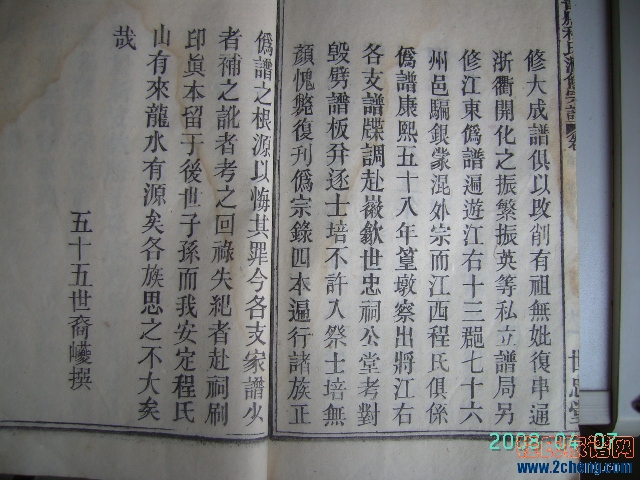 修大成譜俱以攻削有祖無妣復串通
浙衢開化之振繁振英等私立譜局另
修江東僞譜遍遊江右十三郡七十六
州邑騙銀蒙混外宗而江西程氏俱係
僞譜康熙五十八年篁墩察出將江右
各支譜牒調赴嶽歙世忠祠公堂考對
毀劈譜板弁逐士培不許入祭士培無
顔愧斃復刋僞宗錄四本遍行諸族正
僞譜之根源以悔其罪今各支家譜少
者補之訛者考之回祿失祀者赴祠刷
印眞本留于後世子孫而我安定程氏
山有來龍水有源矣各族思之不大矣
哉
五十五世裔㠛撰
世忠堂
2008.04.07
www.2cheng.com